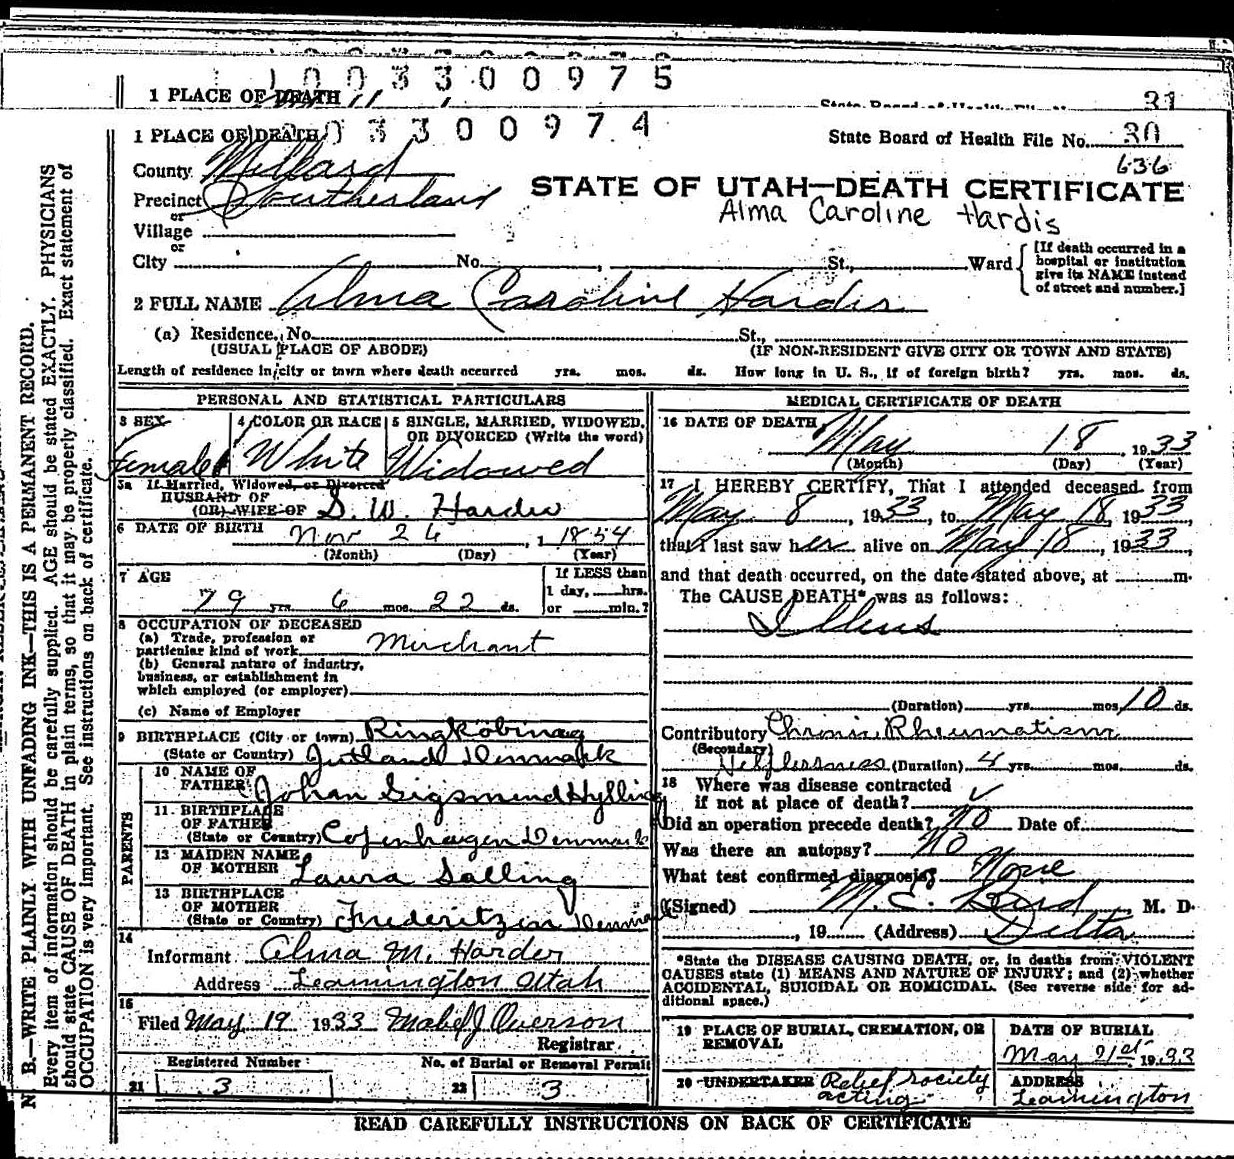 1003300975
1 PLACE OF DEATH
31
1 PLACE OF DEATH 1003300974
State Board of Health File No. 30
636
County Millard
STATE OF UTAH—DEATH CERTIFICATE
Precinct Southerland
or
Alma Caroline Hardis
Village
or
City No. , St., Ward
[If death occurred in a
hospital or institution
give its NAME instead
of street and number.]
2 FULL NAME Alma Caroline Harder
(a) Residence. No. St.,
(USUAL PLACE OF ABODE) (IF NON-RESIDENT GIVE CITY OR TOWN AND STATE)
Length of residence in city or town where death occurred yrs. mos. ds. How long in U. S., if of foreign birth? yrs. mos. ds.
PERSONAL AND STATISTICAL PARTICULARS
3 SEX 4 COLOR OR RACE 5 SINGLE, MARRIED, WIDOWED,
OR DIVORCED (Write the word)
Female White Widowed
5a If Married, Widowed, or Divorced
HUSBAND OF
(OR) WIFE OF S. W. Harder
6 DATE OF BIRTH Nov 26, 1854
(Month) (Day) (Year)
7 AGE If LESS than
1 day, hrs.
79 yrs. 6 mos. 22 ds. or min.?
8 OCCUPATION OF DECEASED
(a) Trade, profession or
particular kind of work Merchant
(b) General nature of industry,
business, or establishment in
which employed (or employer)
(c) Name of Employer
9 BIRTHPLACE (City or town) Ringköbinag
(State or Country) Jutland Denmark
PARENTS
10 NAME OF
FATHER Johan Sigsmund Hylling
11. BIRTHPLACE
OF FATHER
(State or Country) Copenhagen Denmark
12 MAIDEN NAME
OF MOTHER Laura Salling
13 BIRTHPLACE
OF MOTHER
(State or Country) Frederitzin Denma
14
Informant Alma M. Harder
Address Leamington Utah
15
Filed May 19 1933 Mabel J Overson
Registrar
Registered Number No. of Burial or Removal Permit
21 3 22 3
MEDICAL CERTIFICATE OF DEATH
16 DATE OF DEATH
May 18, 1933
(Month) (Day) (Year)
17 I HEREBY CERTIFY, That I attended deceased from
May 8, 1933, to May 18, 1933,
that I last saw her alive on May 18, 1933,
and that death occurred, on the date stated above, at m.
The CAUSE DEATH* was as follows:
Illeus
(Duration) yrs. mos. 10 ds.
Contributory Chronic Rheumatism
(Secondary)
Helplessness (Duration) 4 yrs. mos. ds.
18 Where was disease contracted
if not at place of death? ✓
Did an operation precede death? No Date of
Was there an autopsy? No
What test confirmed diagnosis? None
(Signed) M. E. Bird, M. D.
, 19 (Address) Delta
*State the DISEASE CAUSING DEATH, or, in deaths from VIOLENT
CAUSES state (1) MEANS AND NATURE OF INJURY; and (2) whether
ACCIDENTAL, SUICIDAL OR HOMICIDAL. (See reverse side for ad-
ditional space.)
19 PLACE OF BURIAL, CREMATION, OR
REMOVAL
DATE OF BURIAL
May 21st 1933
20 UNDERTAKER Relief Society
acting
ADDRESS
Leamington
READ CAREFULLY INSTRUCTIONS ON BACK OF CERTIFICATE
N. B.—WRITE PLAINLY WITH UNFADING INK—THIS IS A PERMANENT RECORD.
Every item of information should be carefully supplied. AGE should be stated EXACTLY. PHYSICIANS
should state CAUSE OF DEATH in plain terms, so that it may be properly classified. Exact statement of
OCCUPATION is very important. See instructions on back of certificate.